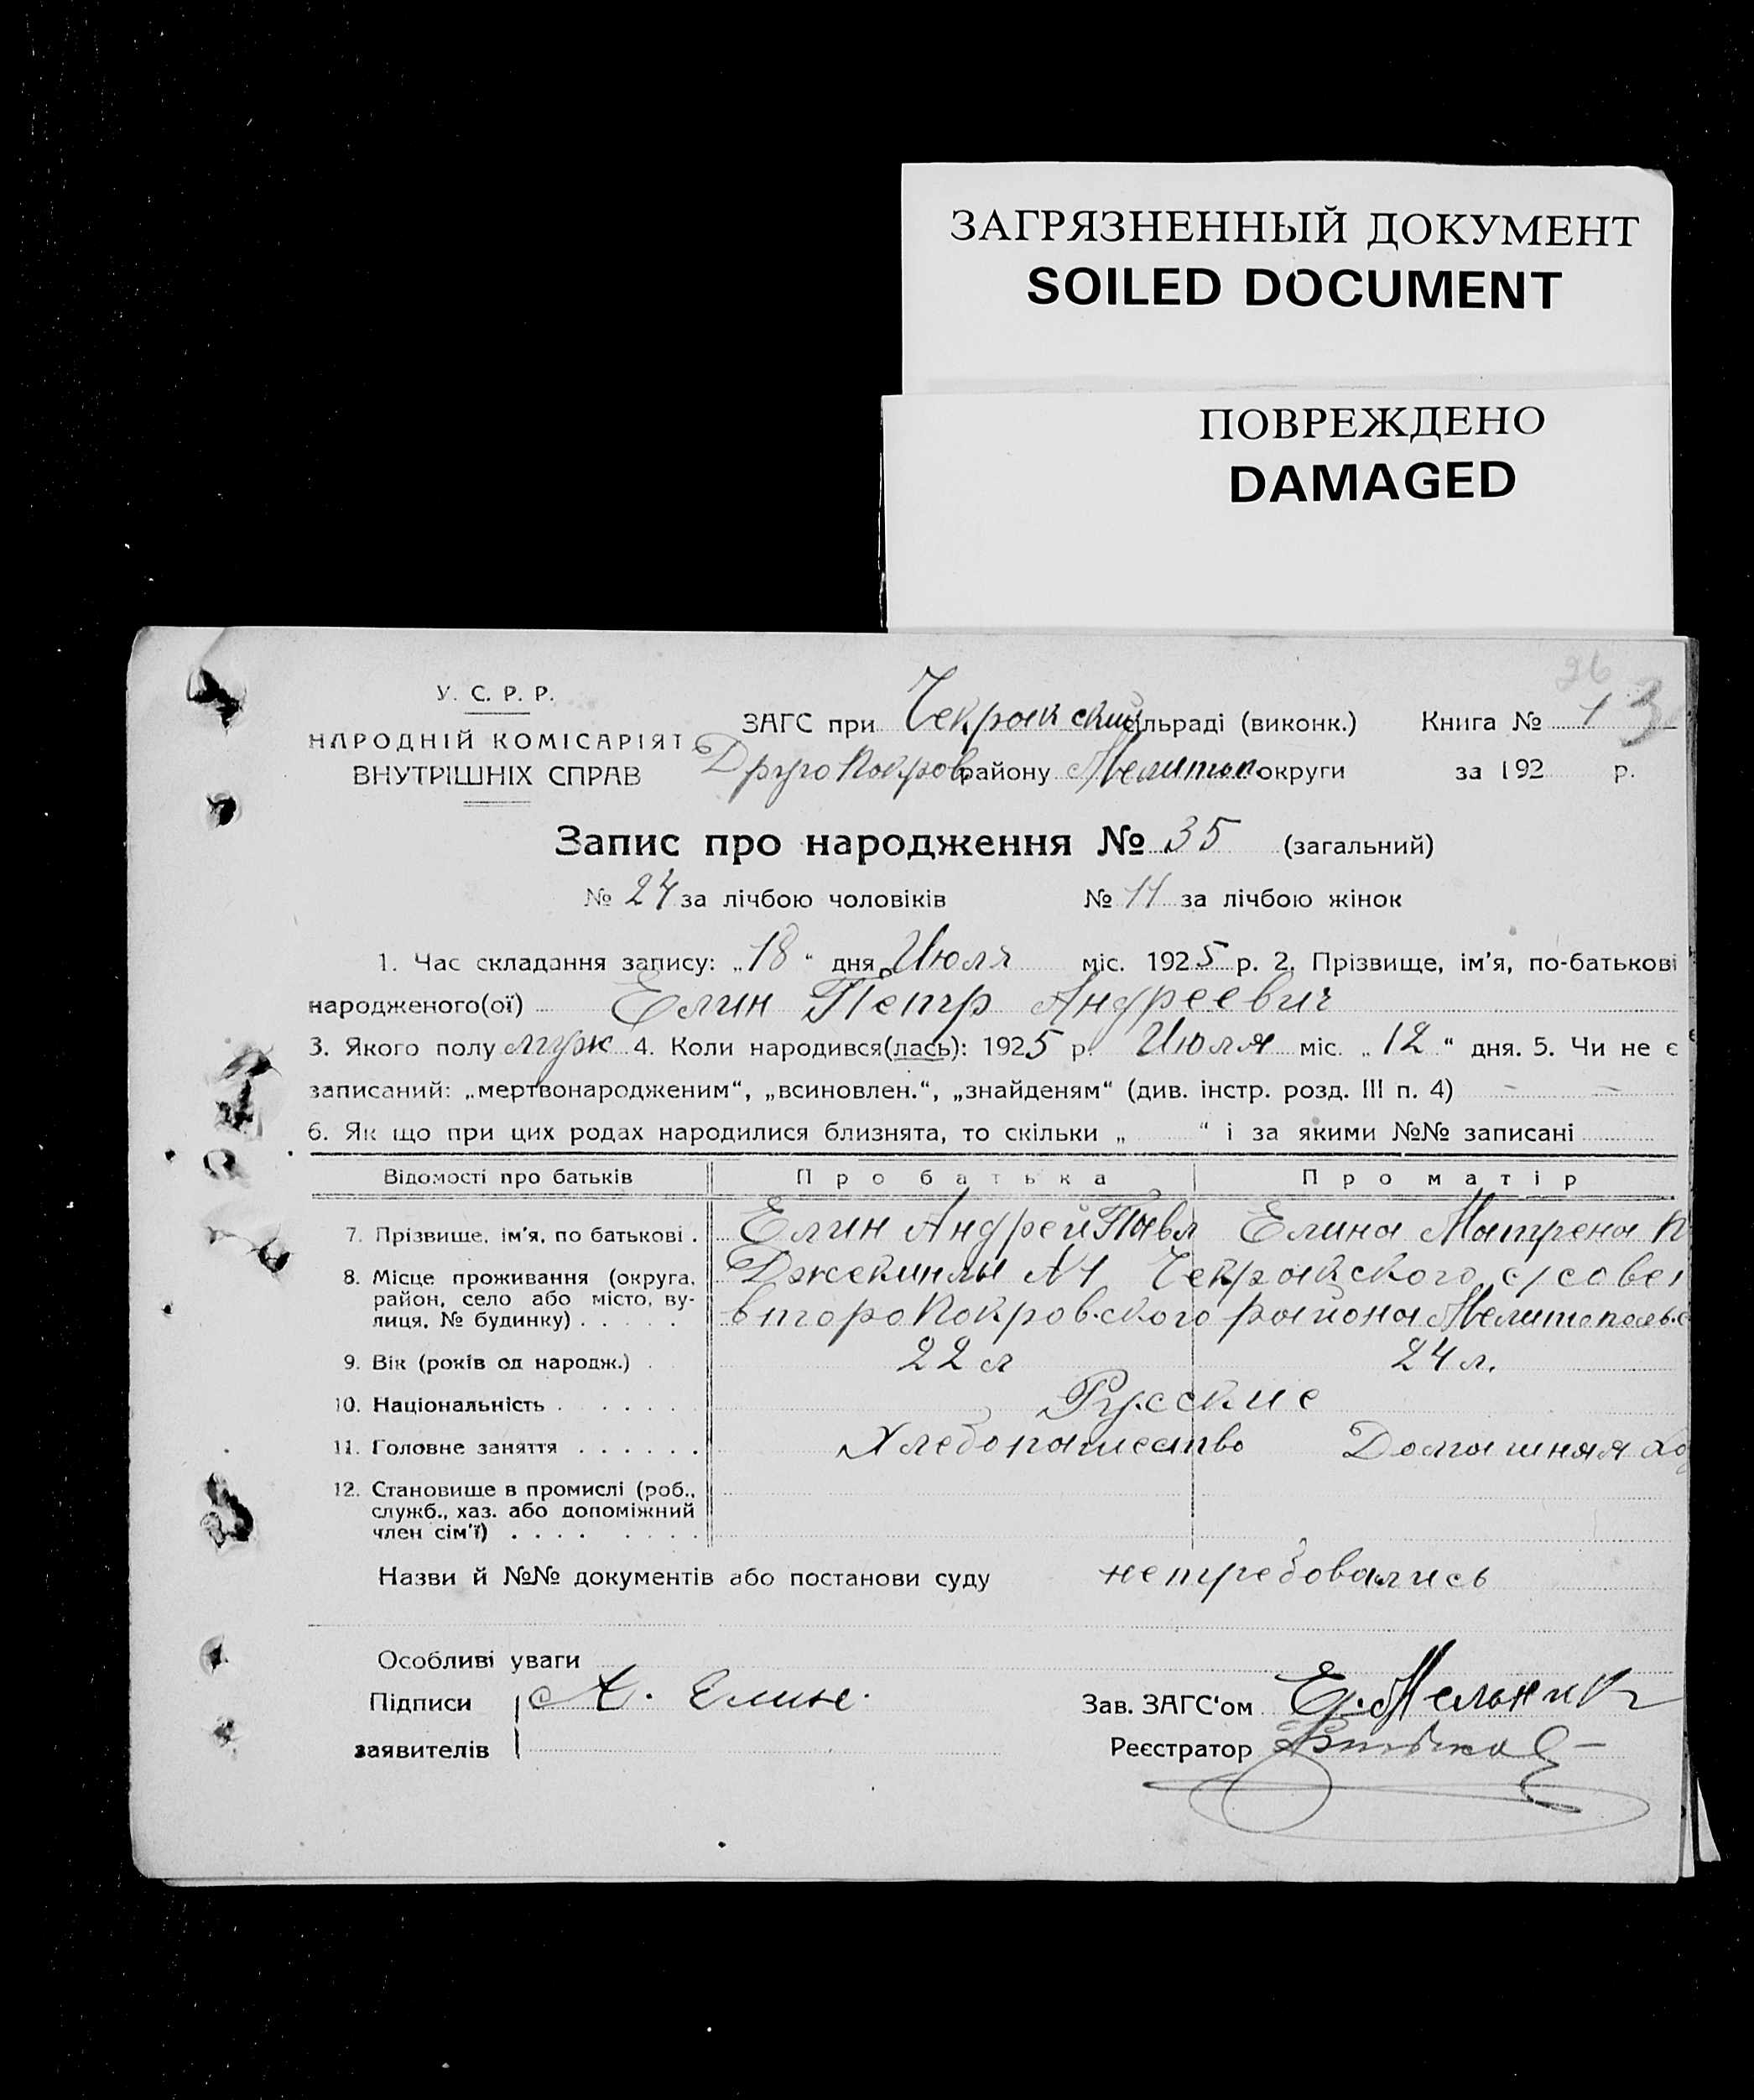 ЗАГРЯЗНЕННЫЙ ДОКУМЕНТ
SOILED DOCUMENT
ПОВРЕЖДЕНО
DAMAGED
26
У. С. Р. Р.
НАРОДНІЙ КОМІСАРІЯТ
ВНУТРІШНІХ СПРАВ
ЗАГС при Чекракский сільраді (виконк.) Книга № 1 3
Другопокров. району Мелитоп. округи за 192 р.
Запис про народження № 35 (загальний)
№ 24 за лічбою чоловіків № 11 за лічбою жінок
1. Час складання запису: „18“ дня Июля міс. 1925 р. 2. Прізвище, ім'я, по-батькові
народженого(ої) Елин Петр Андреевич
3. Якого полу муж 4. Коли народився(лась): 1925 р. Июля міс. „12“ дня. 5. Чи не є
записаний: „мертвонародженим“, „всиновлен.“, „знайденям“ (див. інстр. розд. III п. 4)
6. Як що при цих родах народилися близнята, то скільки „ “ і за якими №№ записані
Відомості про батьків Про батька Про матір
7. Прізвище, ім'я, по батькові . Елин Андрей Павл Елина Матрена П
8. Місце проживання (округа, район, село або місто, вулиця, № будинку) . . . . . Джекинлы №1 Чекракского с/совет
второпокровского района Мелитопольс
9. Вік (років од народж.) . 22 л 24 л.
10. Національність . . . . . . Русские
11. Головне заняття . . . . . . Хлебопашество Домашняя хо
12. Становище в промислі (роб.,
служб., хаз. або допоміжний
член сім'ї) . . . . . . . .
Назви й №№ документів або постанови суду не требовались
Особливі уваги
Підписи А. Елин. Зав. ЗАГС'ом Е. Мельник
заявителів Реєстратор